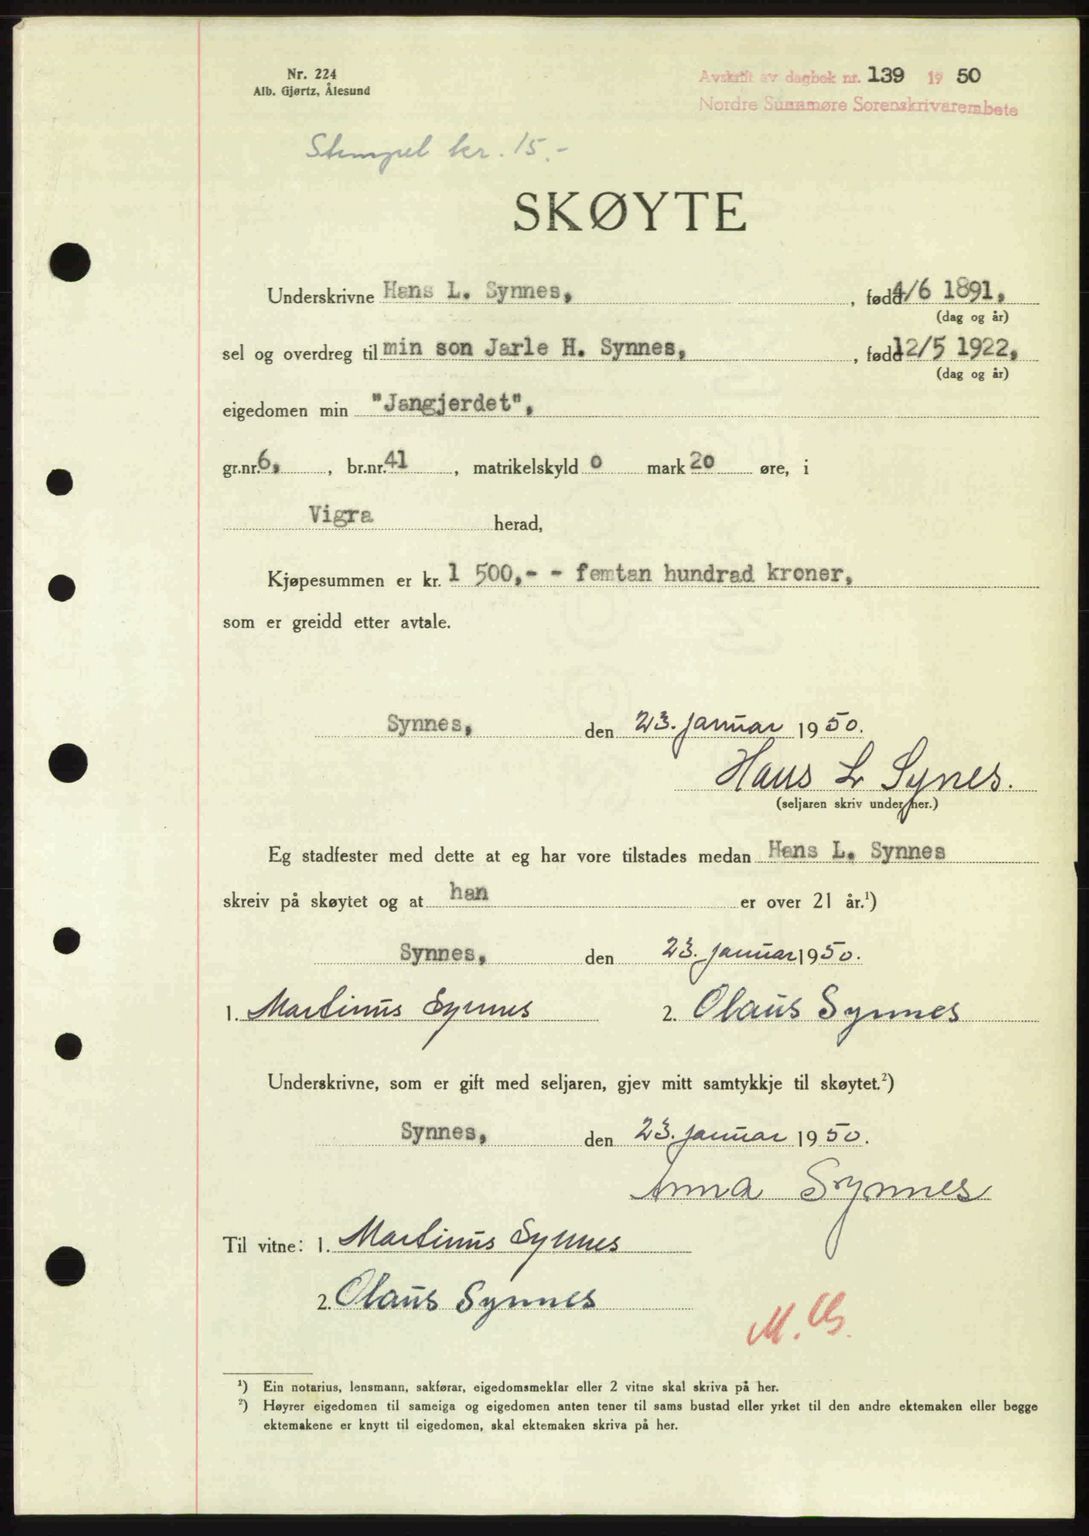 Nr. 224
Alb. Gjørtz, Ålesund
Avskrift av dagbok nr. 139 1950
Nordre Sunnmøre Sorenskrivarembete
Stempel kr. 15.-
SKØYTE
Underskrivne Hans L. Synnes, , fødd 4/6 1891,
(dag og år)
sel og overdreg til min son Jarle H. Synnes, , fødd 12/5 1922,
(dag og år)
eigedomen min "Jangjerdet",
gr.nr. 6, , br.nr. 41 , matrikelskyld 0 mark 20 øre, i
Vigra herad,
Kjøpesummen er kr. 1 500,- - femtan hundrad kroner,
som er greidd etter avtale.
Synnes, den 23. januar 1950.
Hans L Synes.
(seljaren skriv under her.)
Eg stadfester med dette at eg har vore tilstades medan Hans L. Synnes
skreiv på skøytet og at han er over 21 år.¹)
Synnes, den 23. januar 1950.
1. Martinus Synnes 2. Olaus Synnes
Underskrivne, som er gift med seljaren, gjev mitt samtykkje til skøytet.²)
Synnes, den 23. januar 1950.
Anna Synnes
Til vitne: 1. Martinus Synnes
2. Olaus Synnes
¹) Ein notarius, lensmann, sakførar, eigedomsmeklar eller 2 vitne skal skriva på her.
²) Høyrer eigedomen til sameiga og eigedomen anten tener til sams bustad eller yrket til den andre ektemaken eller begge
ektemakene er knytt til eigedomen, skal ektemaken skriva på her.